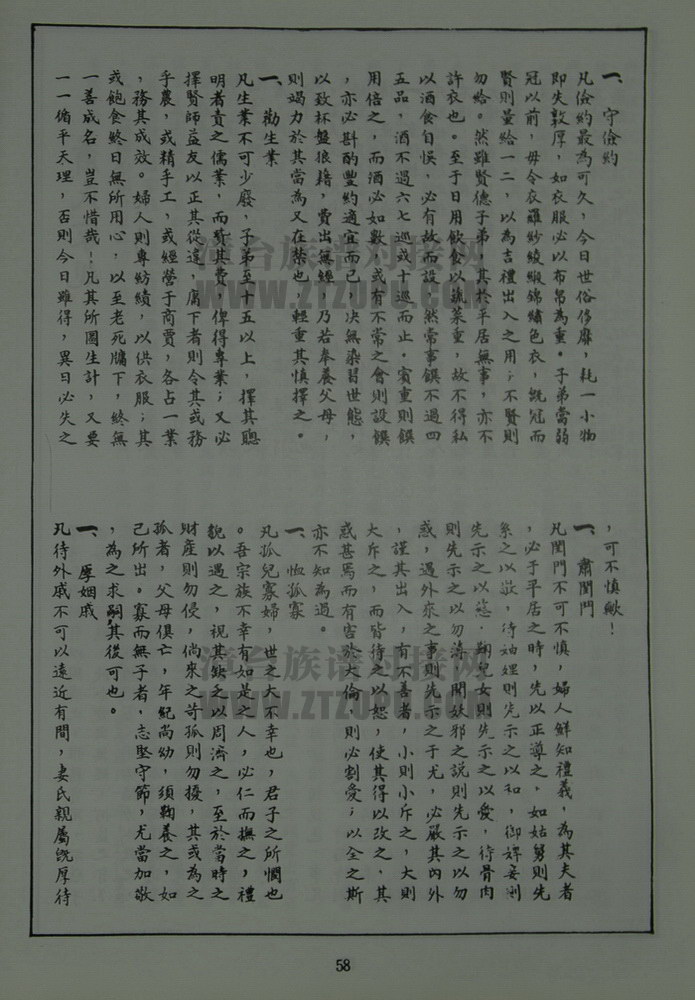 一、守儉約
凡儉約最為可久，今日世俗侈靡，耗一小物
即失敦厚，如衣服必以布帛為重。子弟當弱
冠以前，毋令衣羅紗綾緞錦繡色衣，既冠而
賢則量給一二，以為吉禮出入之用；不賢則
勿給。然雖賢德子弟，其於平居無事，亦不
許衣也。至于日用飲食以蔬菜重，故不得私
以酒食自悞，必有故而設，然常事饌不過四
五品，酒不過六七巡或十巡而止。賓重則饌
用倍之，而酒必如數，或有不常之會則設饌
，亦必斟酌豐約適宜而已，决無染習世態，
以致杯盤狼藉，費出無經，乃若奉養父母，
則竭力於其當為又在禁也，輕重其慎擇之。
一、勸生業
凡生業不可少廢，子弟至十五以上，擇其聰
明者責之儒業，而資其費，俾得專業；又必
擇賢師益友以正其從違，庸下者則令其或務
乎農，或精手工，或經營于商賈，各占一業
，務其成效。婦人則專紡績，以供衣服；其
或飽食終日無所用心，以至老死牖下，終無
一善成名，豈不惜哉！凡其所圖生計，又要
一一循乎天理，否則今日雖得，異日必失之
，可不慎歟！
一、肅閨門
凡閨門不可不慎，婦人鮮知禮義，為其夫者
，必于平居之時，先以正導之，如姑舅則先
示之以敬，待妯娌則先示之以和，御婢妾則
先示之以慈，翔兒女則先示之以愛，待骨肉
則先示之以勿 ，聞妖邪之說則先示之以勿
惑，遇外來之事則先示之于尤，必嚴其內外
，謹其出入，有不善者，小則小斥之，大則
大斥之，而皆待之以恕，使其得以改之，其
惑甚焉而有害於大倫，則必割愛；以全之斯
亦不知為過。
一、恤孤寡
凡孤兒寡婦，世之大不幸也，君子之所憫也
。吾宗族不幸有如是之人，必仁而撫之，禮
貌以遇之，視其缺之以周濟之，至於當時之
財産則勿侵，倘來之苛孤則勿擾，其或為之
孤者，父母俱亡，年紀尚幼，須鞠養之，如
己所出。寡而無子者，志堅守節，尤當加敬
，為之求嗣其後可也。
一、厚姻戚
凡待外戚不可以遠近有間，妻氏親屬既厚待
58
漳台族谱对接网
WWW.ZTZUPU.COM
漳台族谱对接网
WWW.ZTZUPU.COM